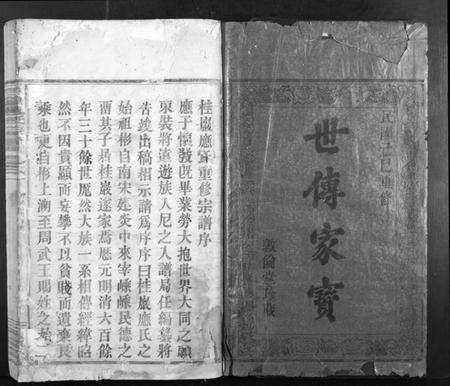 民國己巳重修
世傳家寶
敦倫堂珍藏
桂巖應家重修宗譜序
應于懷發旣畢業勞大抱世界大同之願
束裝將遠遊族人尼之入譜局任編纂將
告竣出稿相示請爲序序曰桂巖應氏之
始祖彬自南宋建炎中來宰嵊嵊民德之
留其子居桂巖遂家焉應元明清六百餘
年三十餘世厖然大族一系相傳經緯昭
然不因貴顯而妄攀不以貧賤而遺棄良
乘也更自彬上溯至周武王賜姓之始